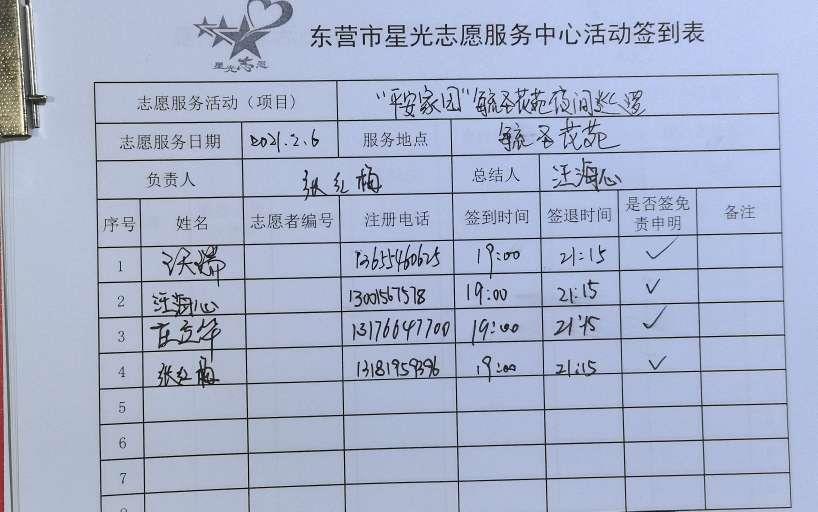 星光志愿
东营市星光志愿服务中心活动签到表
志愿服务活动（项目） “平安家园”毓圣花苑夜间巡逻
志愿服务日期 2021.2.6 服务地点 毓圣花苑
负责人 张红梅 总结人 汪海心
序号 姓名 志愿者编号 注册电话 签到时间 签退时间 是否签免责申明 备注
1 13655460625 19:00 21:15 ✓
2 汪海心 13001567578 19:00 21:15 ✓
3 13176647700 19:00 21:15 ✓
4 张红梅 13181959396 19:00 21:15 ✓
5
6
7